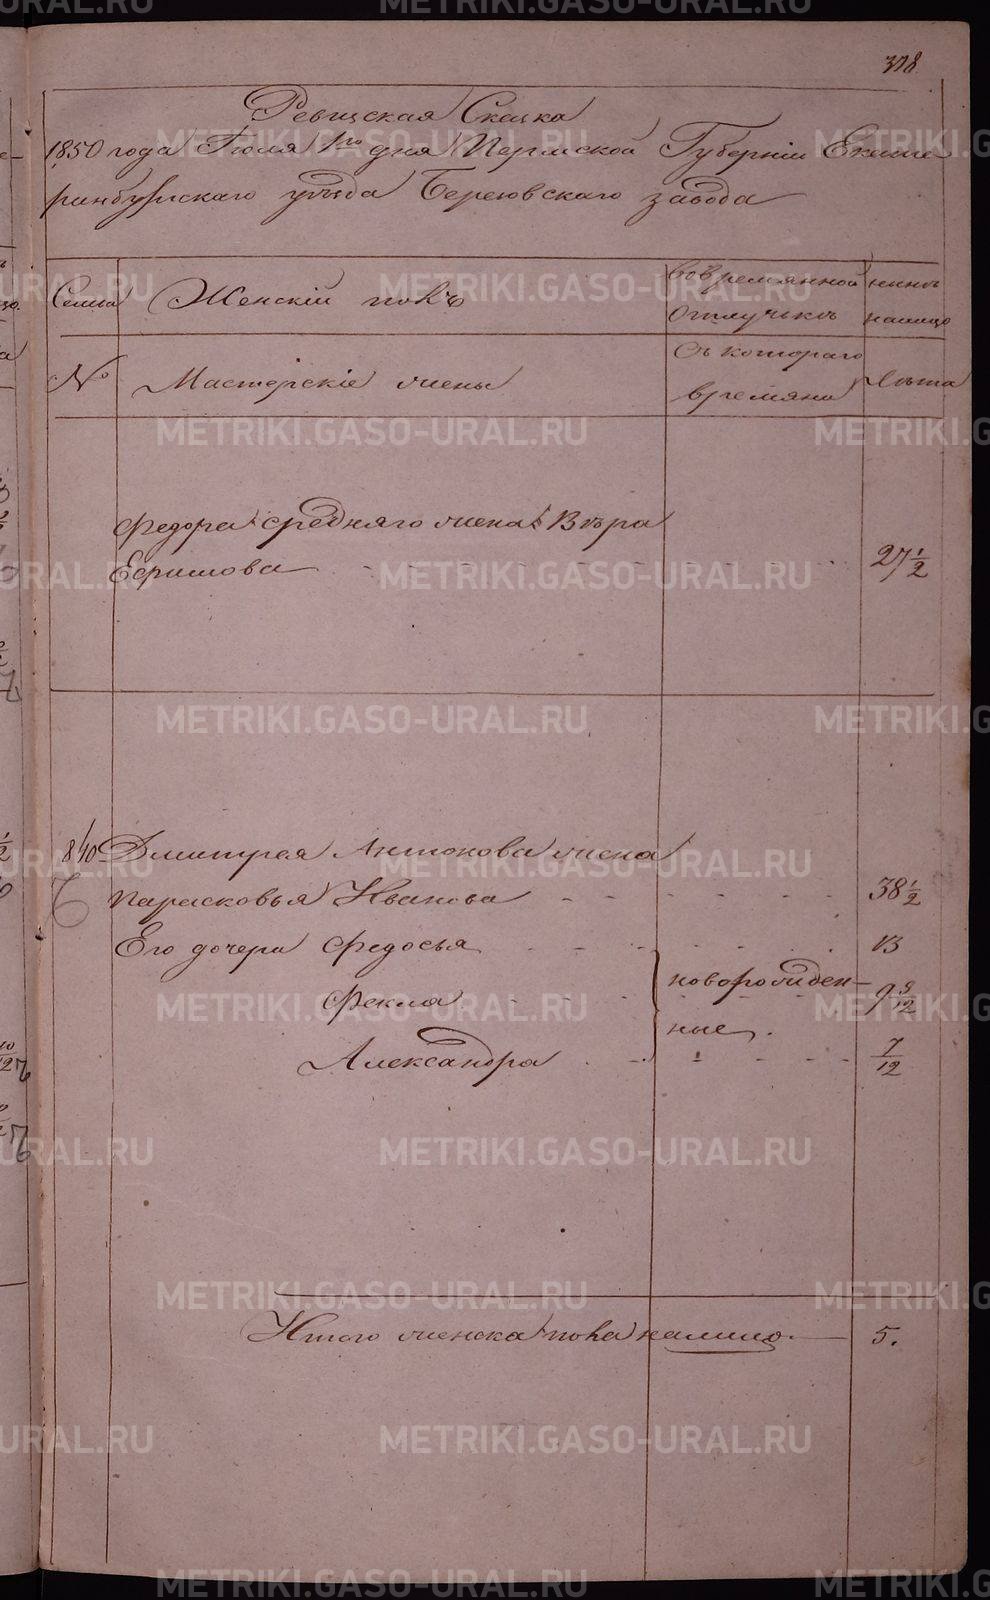 378
Ревижская Скаска
1850 года Іюля 1го дня Пермской Губерніи Екате
ринбургскаго уѣзда Березовскаго завода
Семьи Женскій полъ Во временной нынѣ
отлучькѣ налицо
№ Мастерскіе жены Съ котораго Лѣта
времяни
Федора средняго жена Вѣра
Ефимова 27 1/2
840 Дмитрея Антонова жена
Парасковья Иванова 38 1/2
Его дочери Федосья 13
Фекла новорожден- 9 9/12
ные.
Александра 7/12
Итого женска пола налицо 5.
METRIKI.GASO-URAL.RU